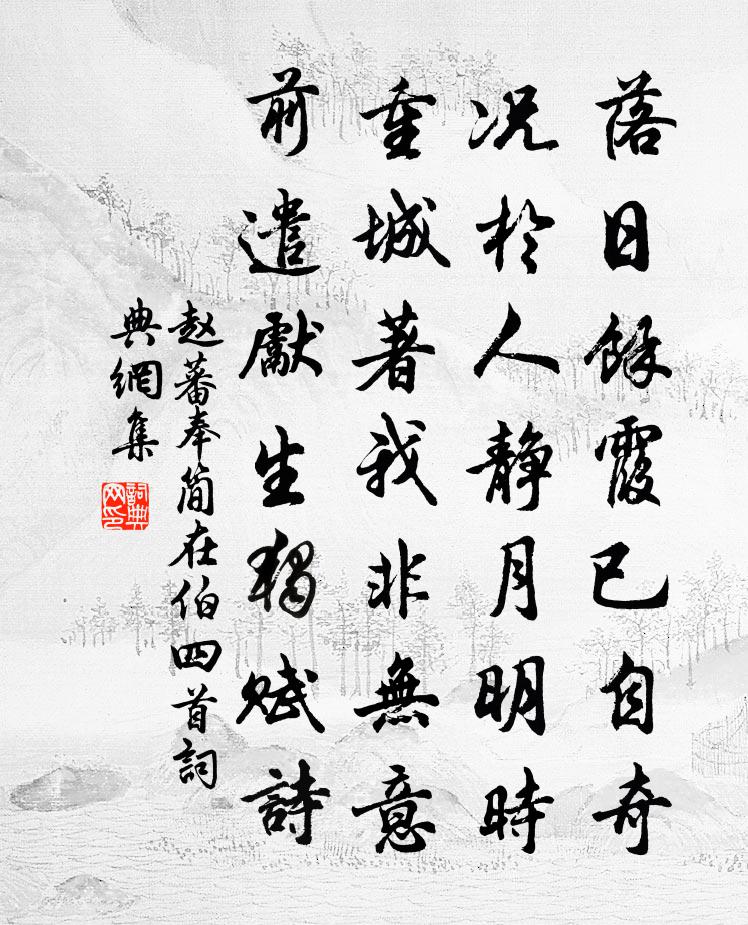 落日餘霞已自奇
况於人靜月明時
重城著我非無意
前遣獻生獨賦詩
赵蕃奉简在伯四首詞
典網集
詞典
网印